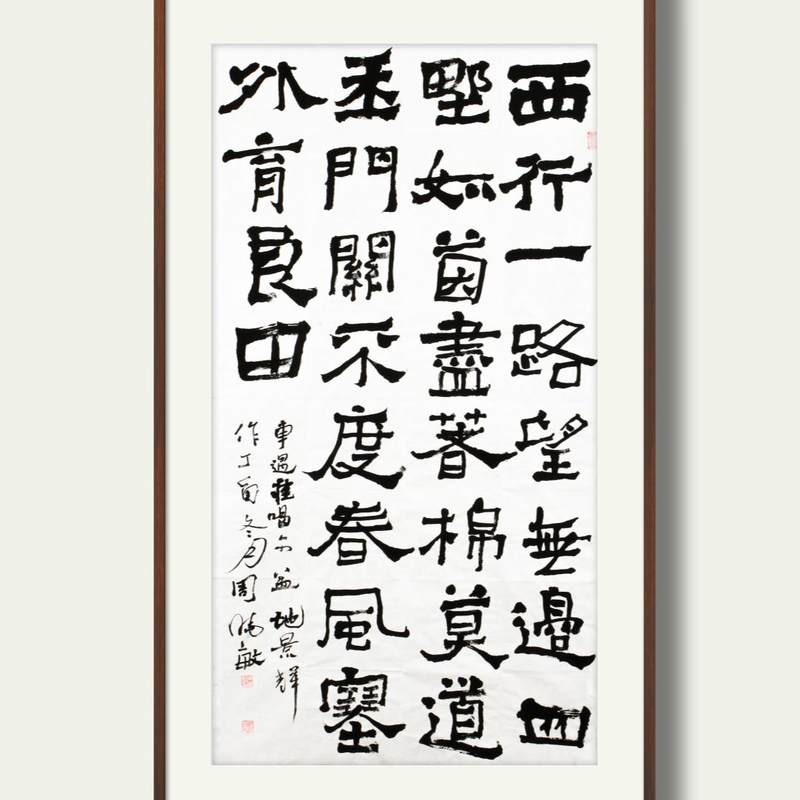 西行一路望無邊四
野如茵盡著棉莫道
玉門關不度春風塞
外育良田
車過準噶尔盆地景輝
作丁酉冬月周曉敏